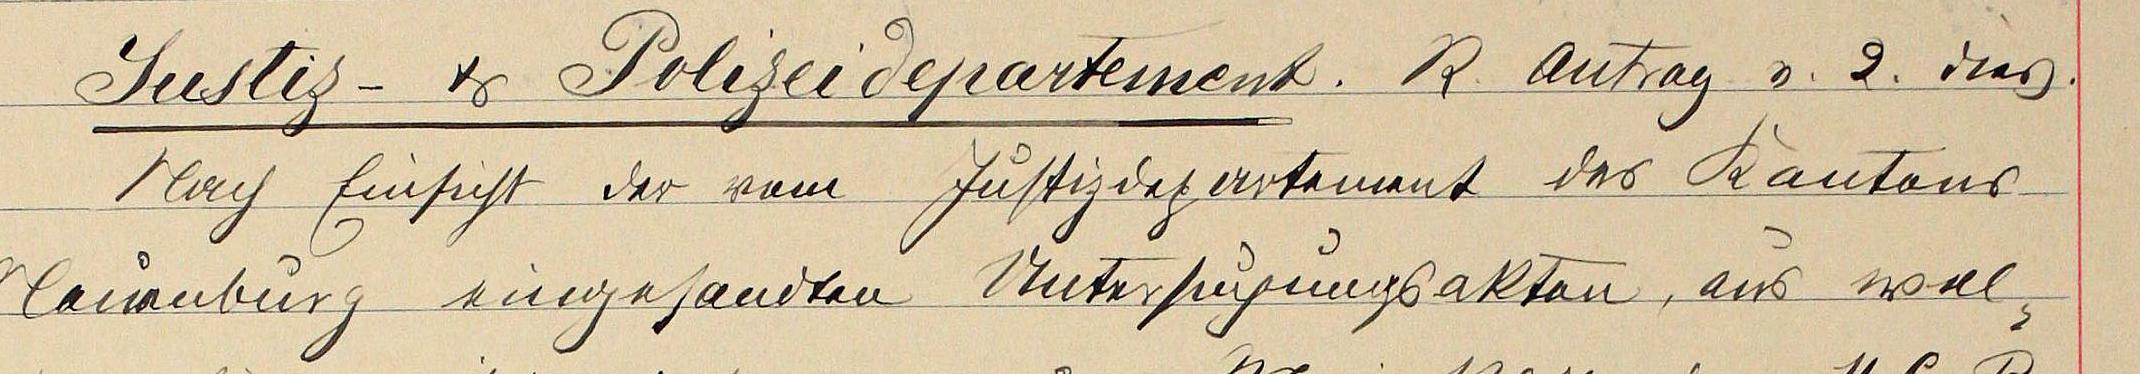 Justiz- & Polizeidepartement. R. Antrag v. 2. dies.
Nach Einsicht der vom Justizdepartement des Kantons
Neuenburg eingesandten Untersuchungsakten, aus wel-